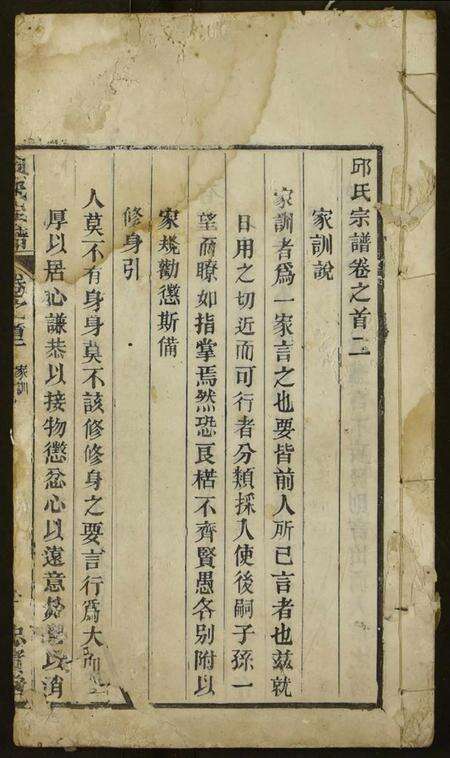 邱氏宗譜卷之首二
家訓說
家訓者爲一家言之也要皆前人所已言者也茲就
日用之切近而可行者分類採入使後嗣子孫一
望而瞭如指掌焉然恐良楛不齊賢愚各別附以
家規勸懲斯備
修身引
人莫不有身身莫不該修修身之要言行爲大
厚以居心謙恭以接物懲忿心以遠意
氏宗譜
卷之首二
家訓